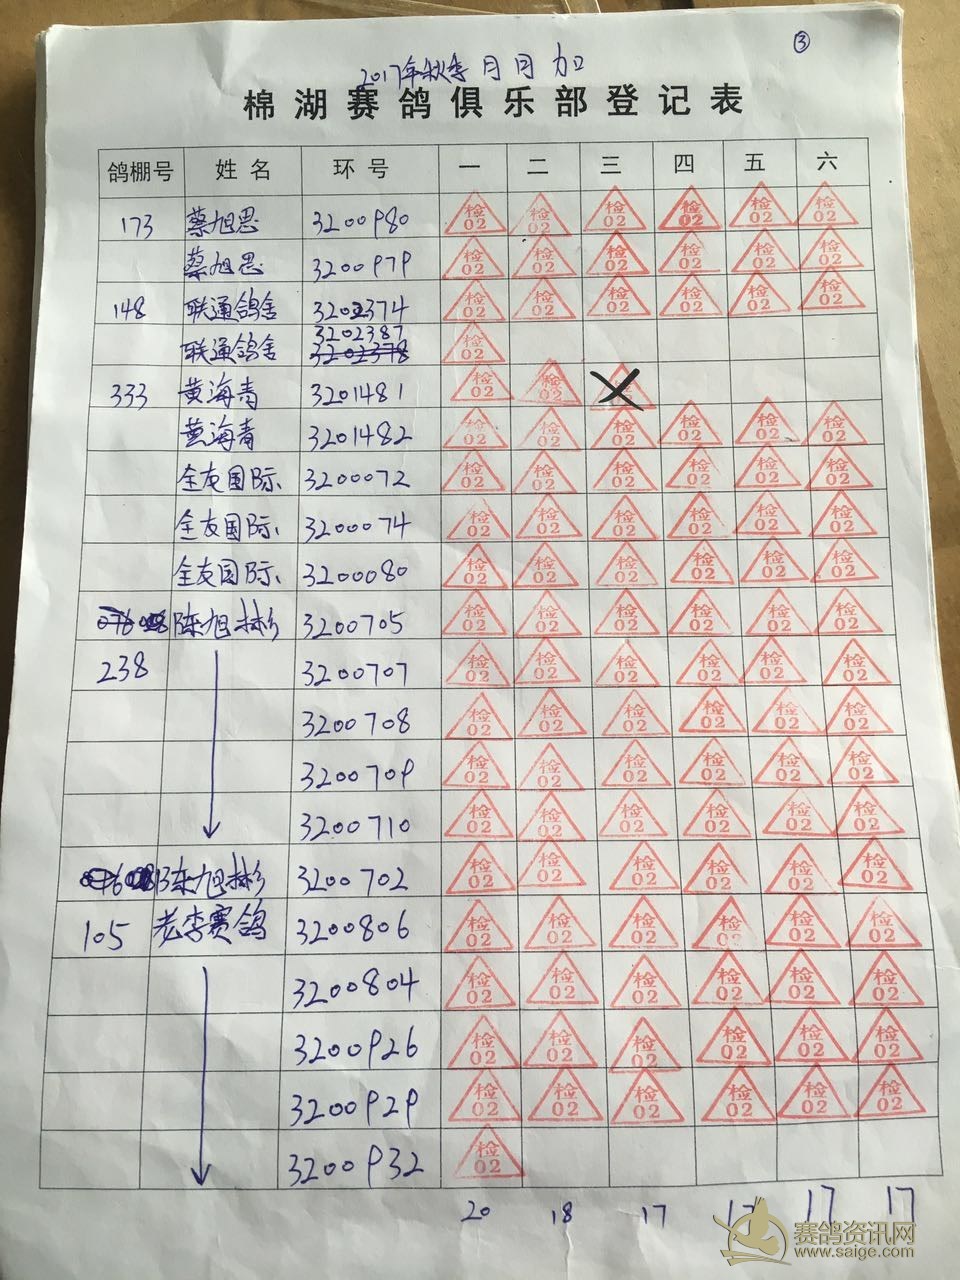 ③
2017年秋季 月月加
棉湖赛鸽俱乐部登记表
鸽棚号 姓名 环号 一 二 三 四 五 六
173 蔡旭思 3200980 检02 检02 检02 检02 检02 检02
蔡旭思 3200979 检02 检02 检02 检02 检02 检02
148 联通鸽舍 3202374 检02 检02 检02 检02 检02 检02
3202387
联通鸽舍 3202378 检02
333 黄海青 3201481 检02 检02
黄海青 3201482 检02 检02 检02 检02 检02 检02
全友国际 3200072 检02 检02 检02 检02 检02 检02
全友国际 3200074 检02 检02 检02 检02 检02 检02
全友国际 3200080 检02 检02 检02 检02 检02 检02
陈旭彬 3200705 检02 检02 检02 检02 检02 检02
238 3200707 检02 检02 检02 检02 检02 检02
3200708 检02 检02 检02 检02 检02 检02
3200709 检02 检02 检02 检02 检02 检02
3200710 检02 检02 检02 检02 检02 检02
陈旭彬 3200702 检02 检02 检02 检02 检02 检02
105 老李赛鸽 3200806 检02 检02 检02 检02 检02 检02
3200804 检02 检02 检02 检02 检02 检02
3200926 检02 检02 检02 检02 检02 检02
3200929 检02 检02 检02 检02 检02 检02
3200932 检02
20 18 17 17 17 17
赛鸽资讯网
www.saige.com